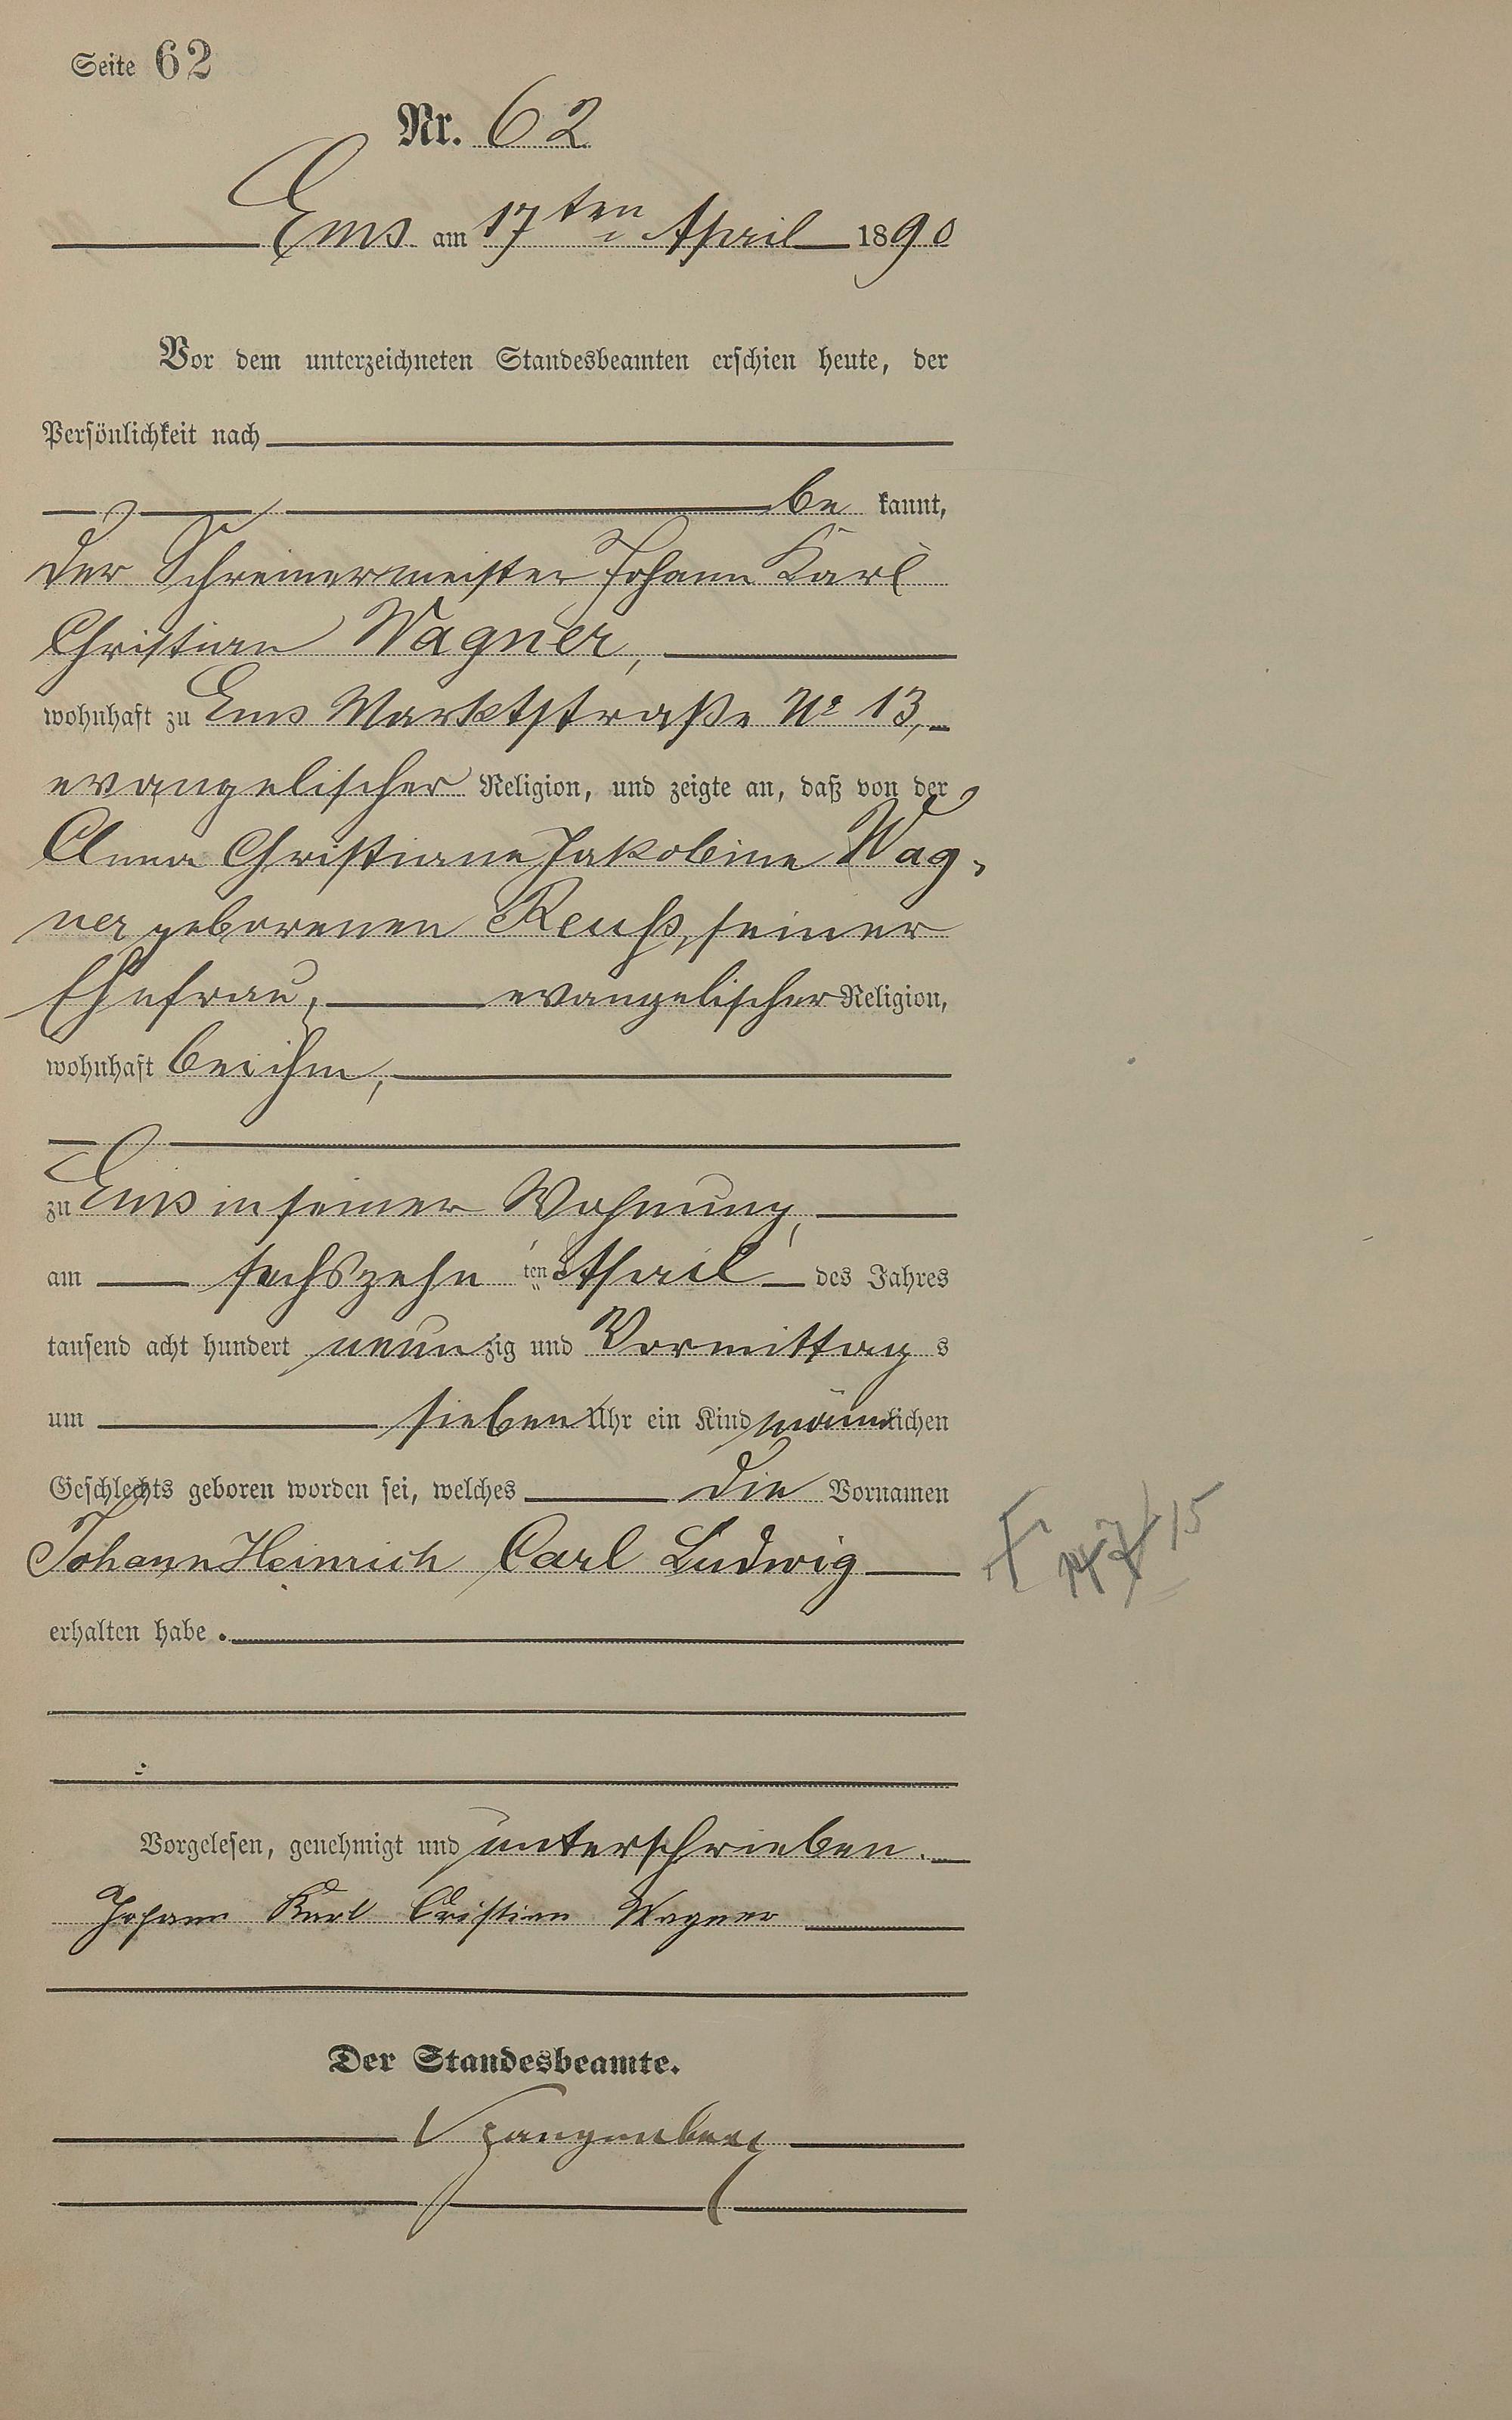 Seite 62
Nr. 62
Ems am 17ten April 1890
Vor dem unterzeichneten Standesbeamten erschien heute, der
Persönlichkeit nach
be kannt,
der Schreinermeister Johann Karl
Christian Wagner,
wohnhaft zu Ems Marktstraße No 13,
evangelischer Religion, und zeigte an, daß von der
Anna Christiane Jakobine Wag-
ner geborenen Reuß, seiner
Ehefrau, evangelischer Religion,
wohnhaft bei ihm,
zu Ems in seiner Wohnung,
am sechszehn ten April des Jahres
tausend acht hundert neunzig und Vormittags
um sieben Uhr ein Kind männlichen
Geschlechts geboren worden sei, welches die Vornamen
Johann Heinrich Carl Ludwig
erhalten habe.
Vorgelesen, genehmigt und unterschrieben.
Johann Karl Christian Wagner
Der Standesbeamte.
Spangenberg